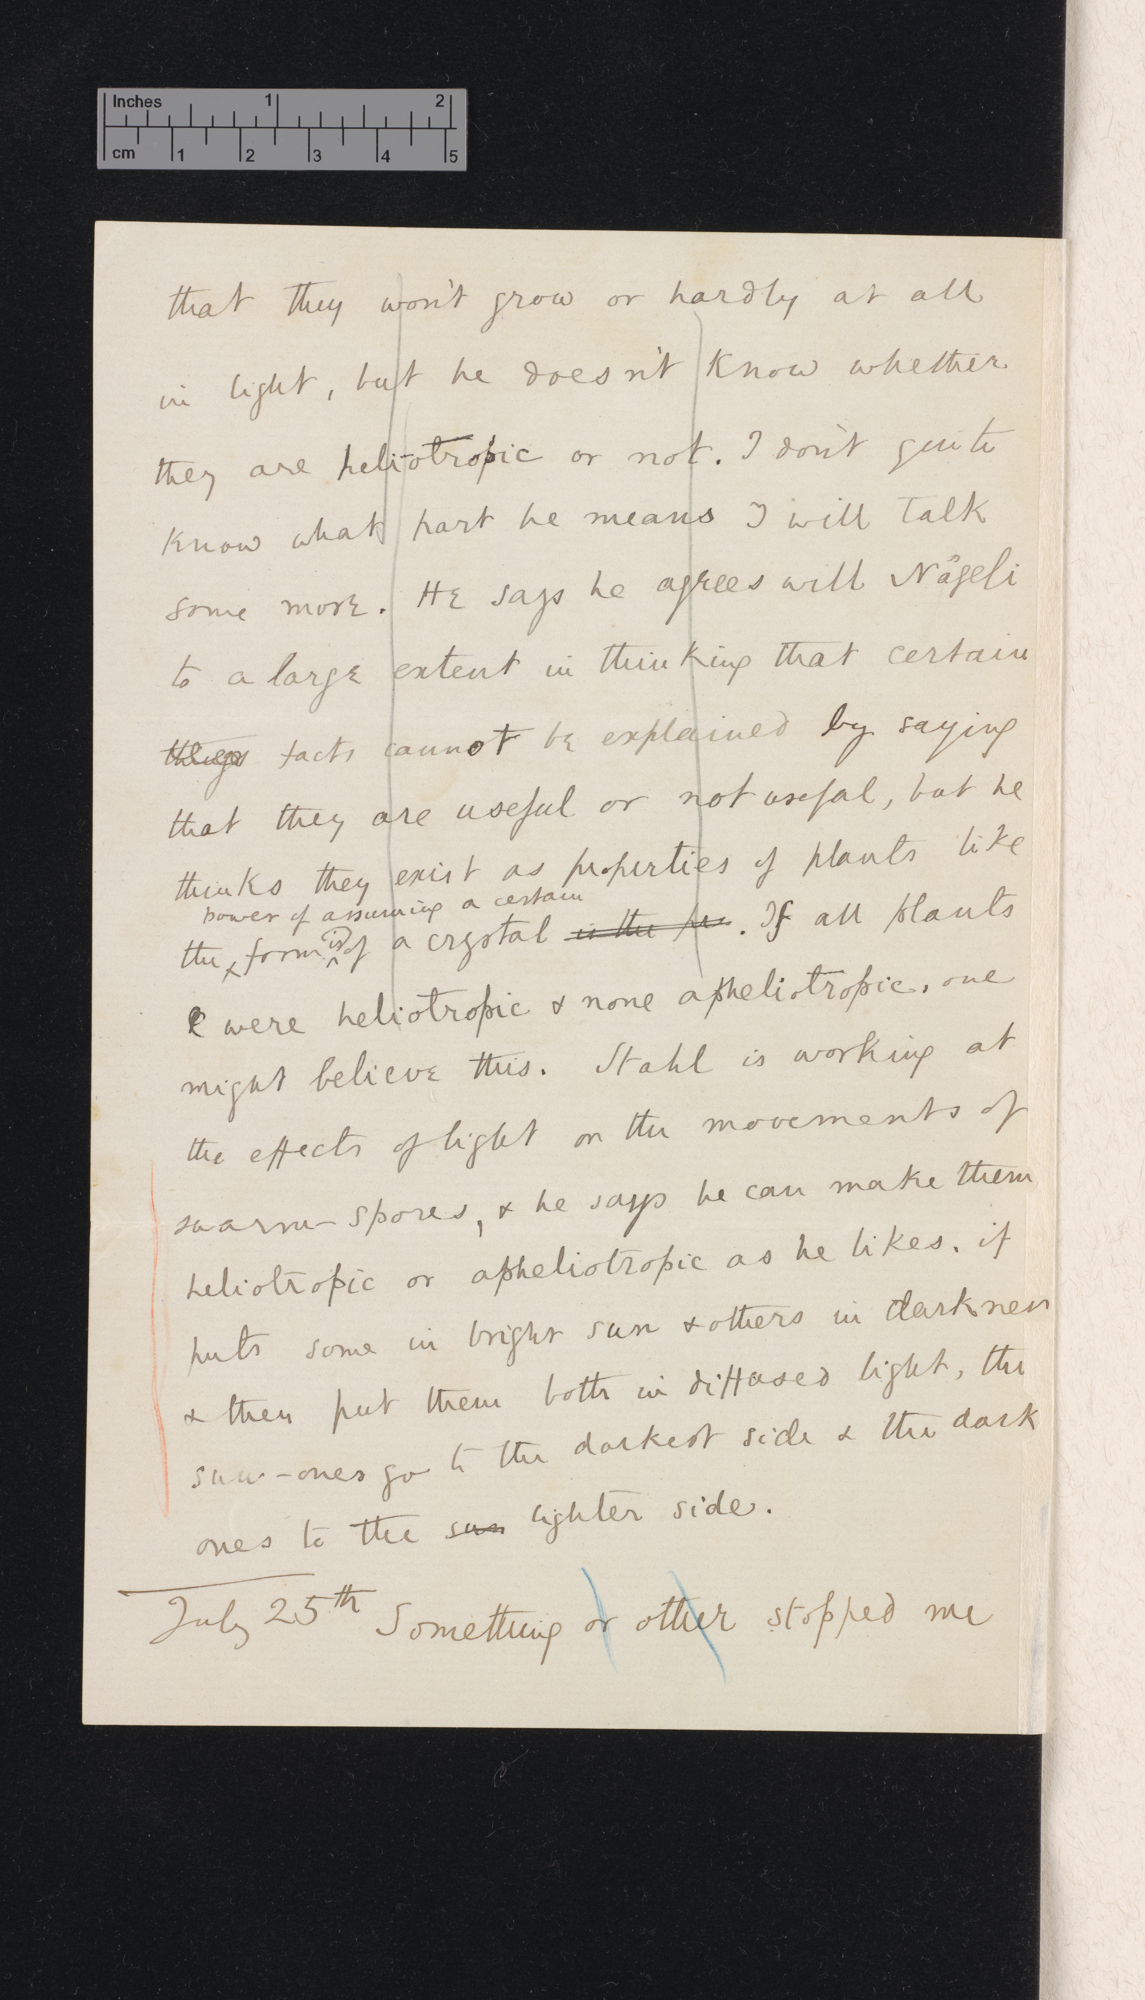 Inches 1 2
cm 1 2 3 4 5
that they won't grow or hardly at all
in light, but he doesn't know whether
they are heliotropic or not. I don't quite
know what part he means I will talk
some more. He says he agrees will Nägeli
to a large extent in thinking that certain
things facts cannot be explained by saying
that they are useful or not useful, but he
thinks they exist as properties of plants like
power of assuming a certain
the form is of a crystal is the . If all plants
were heliotropic & none apheliotropic, one
might believe this. Stahl is working at
the effects of light on the movements of
swarm-spores, & he says he can make them
heliotropic or apheliotropic as he likes. if
puts some in bright sun & others in darkness
& then put them both in diffused light, the
sun-ones go to the darkest side & the dark
ones to the sun lighter side.
July 25th Something or other stopped me